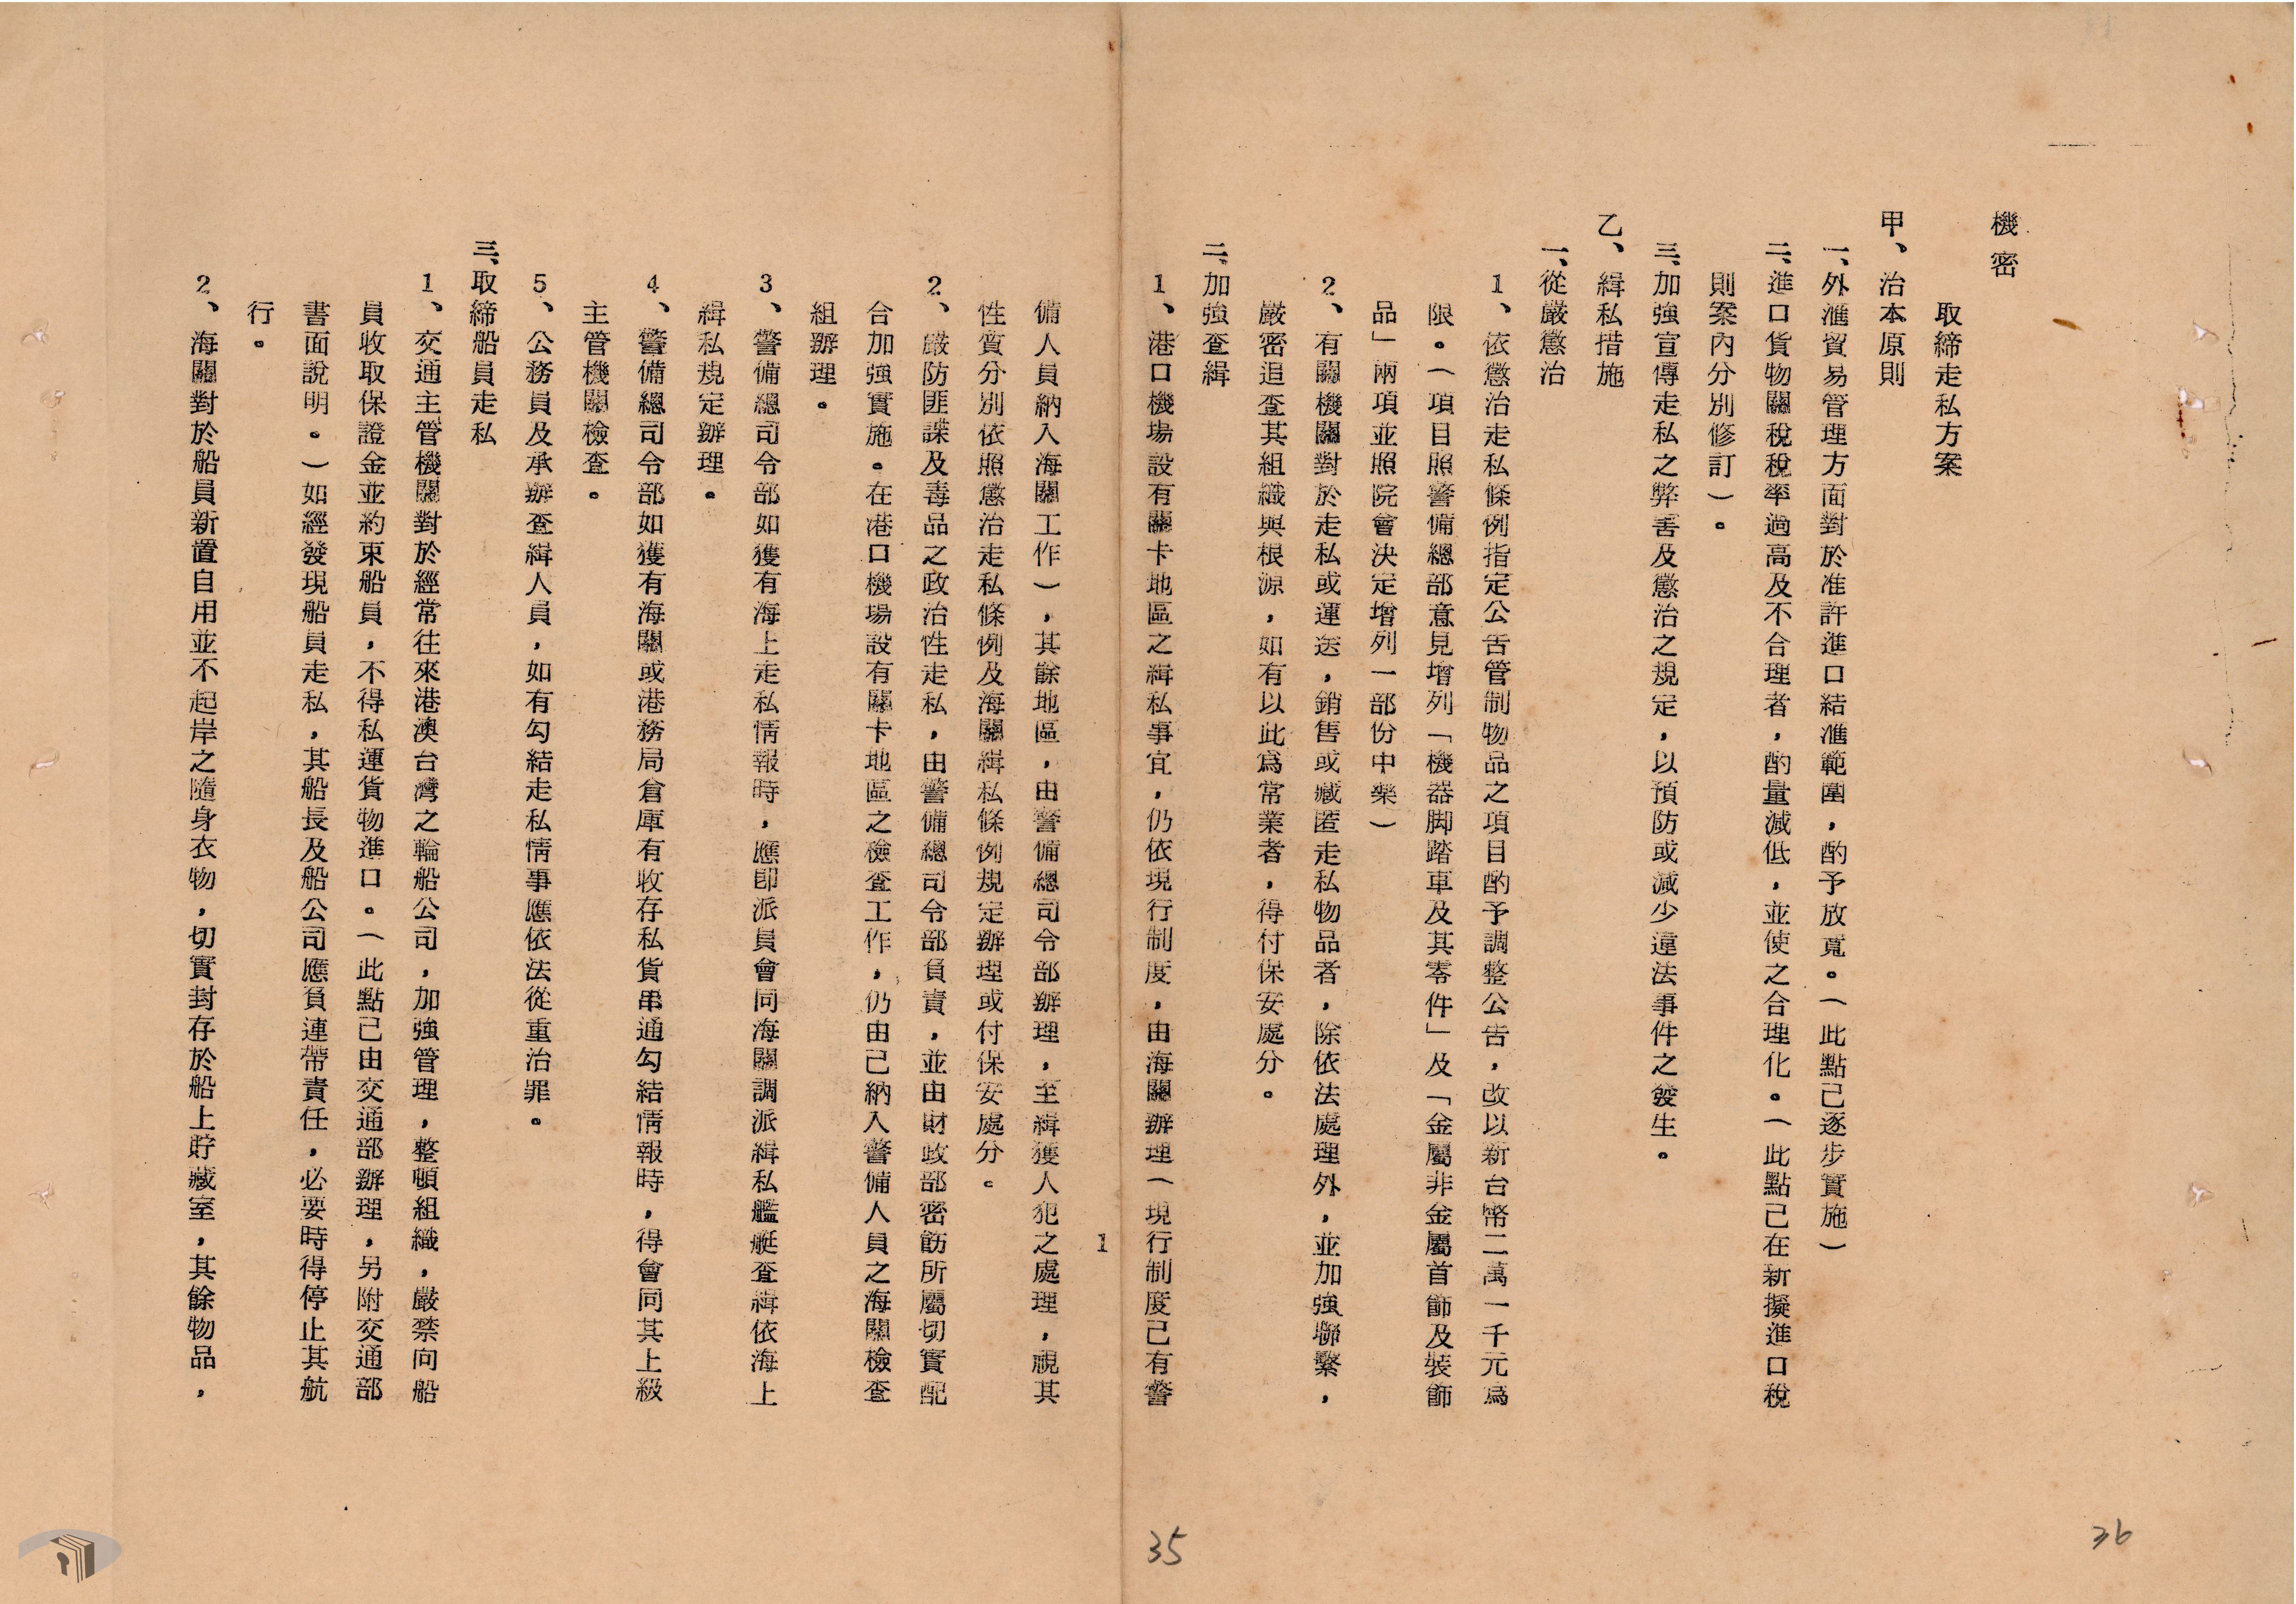 機密
取締走私方案
甲、治本原則
一、外滙貿易管理方面對於准許進口結滙範圍，酌予放寬。（此點已逐步實施）
二、進口貨物關稅稅率過高及不合理者，酌量減低，並使之合理化。（此點已在新擬進口稅
則案內分別修訂）。
三、加強宣傳走私之弊害及懲治之規定，以預防或減少違法事件之發生。
乙、緝私措施
一、從嚴懲治
1、依懲治走私條例指定公告管制物品之項目酌予調整公告，改以新台幣二萬一千元爲
限。（項目照警備總部意見增列「機器脚踏車及其零件」及「金屬非金屬首飾及裝飾
品」兩項並照院會決定增列一部份中藥）
2、有關機關對於走私或運送，銷售或藏匿走私物品者，除依法處理外，並加強聯繫，
嚴密追查其組織與根源，如有以此爲常業者，得付保安處分。
二、加強查緝
1、港口機場設有關卡地區之緝私事宜，仍依現行制度，由海關辦理（現行制度已有警
備人員納入海關工作），其餘地區，由警備總司令部辦理，至緝獲人犯之處理，視其
性質分別依照懲治走私條例及海關緝私條例規定辦理或付保安處分。
2、嚴防匪諜及毒品之政治性走私，由警備總司令部負責，並由財政部密飭所屬切實配
合加強實施。在港口機場設有關卡地區之檢查工作，仍由已納入警備人員之海關檢查
組辦理。
3、警備總司令部如獲有海上走私情報時，應即派員會同海關調派緝私艦艇查緝依海上
緝私規定辦理。
4、警備總司令部如獲有海關或港務局倉庫有收存私貨串通勾結情報時，得會同其上級
主管機關檢查。
5、公務員及承辦查緝人員，如有勾結走私情事應依法從重治罪。
三、取締船員走私
1、交通主管機關對於經常往來港澳台灣之輪船公司，加強管理，整頓組織，嚴禁向船
員收取保證金並約束船員，不得私運貨物進口。（此點已由交通部辦理，另附交通部
書面說明。）如經發現船員走私，其船長及船公司應負連帶責任，必要時得停止其航
行。
2、海關對於船員新置自用並不起岸之隨身衣物，切實封存於船上貯藏室，其餘物品，
1
35
36